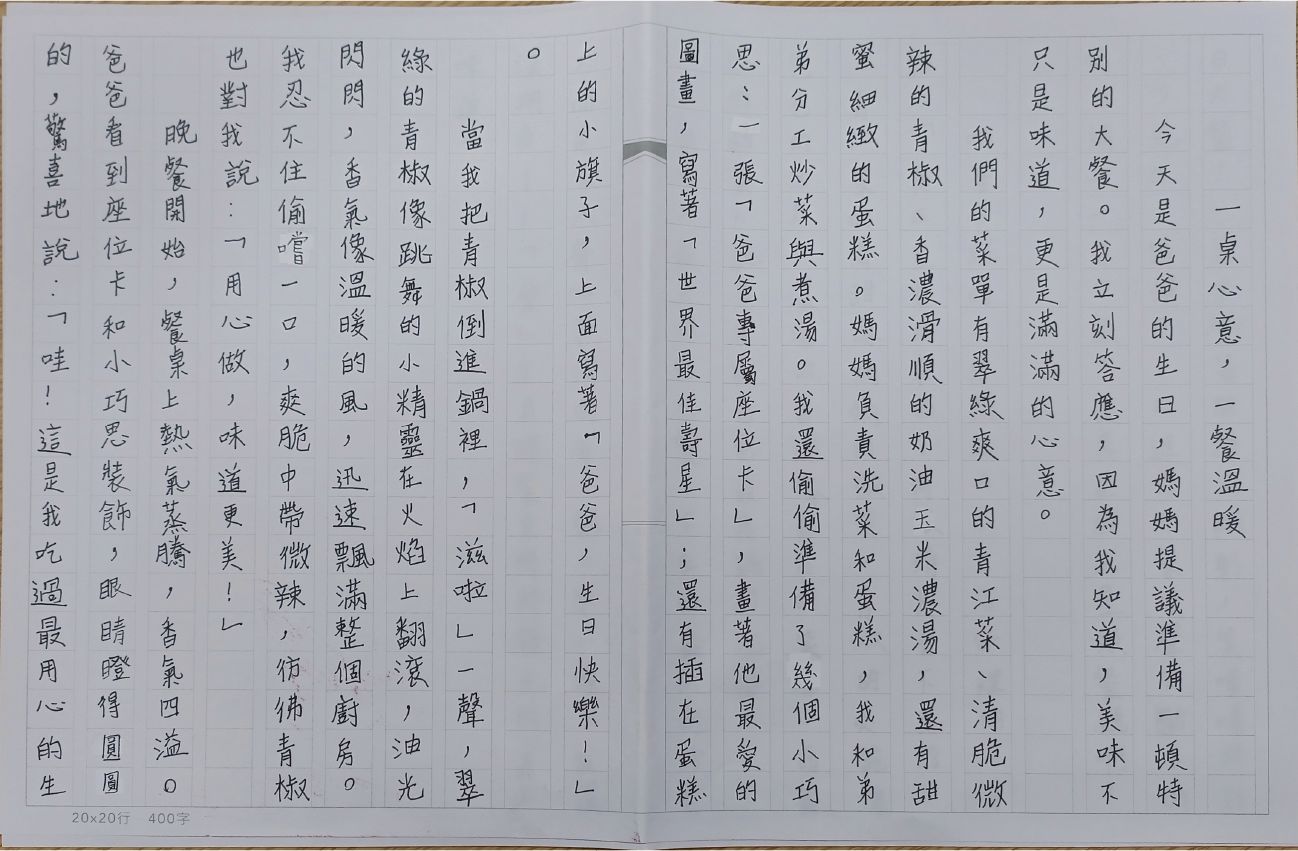 一桌心意，一餐溫暖
今天是爸爸的生日，媽媽提議準備一頓特
別的大餐。我立刻答應，因為我知道，美味不
只是味道，更是滿滿的心意。
我們的菜單有翠綠爽口的青江菜、清脆微
辣的青椒、香濃滑順的奶油玉米濃湯，還有甜
蜜細緻的蛋糕。媽媽負責洗菜和蛋糕，我和弟
弟分工炒菜與煮湯。我還偷偷準備了幾個小巧
思：一張「爸爸專屬座位卡」，畫著他最愛的
圖畫，寫著「世界最佳壽星」；還有插在蛋糕
上的小旗子，上面寫著「爸爸，生日快樂！」
。
當我把青椒倒進鍋裡，「滋啦」一聲，翠
綠的青椒像跳舞的小精靈在火焰上翻滾，油光
閃閃，香氣像溫暖的風，迅速飄滿整個廚房。
我忍不住偷嚐一口，爽脆中帶微辣，彷彿青椒
也對我說：「用心做，味道更美！」
晚餐開始，餐桌上熱氣蒸騰，香氣四溢。
爸爸看到座位卡和小巧思裝飾，眼睛瞪得圓圓
的，驚喜地說：「哇！這是我吃過最用心的生
20x20行 400字